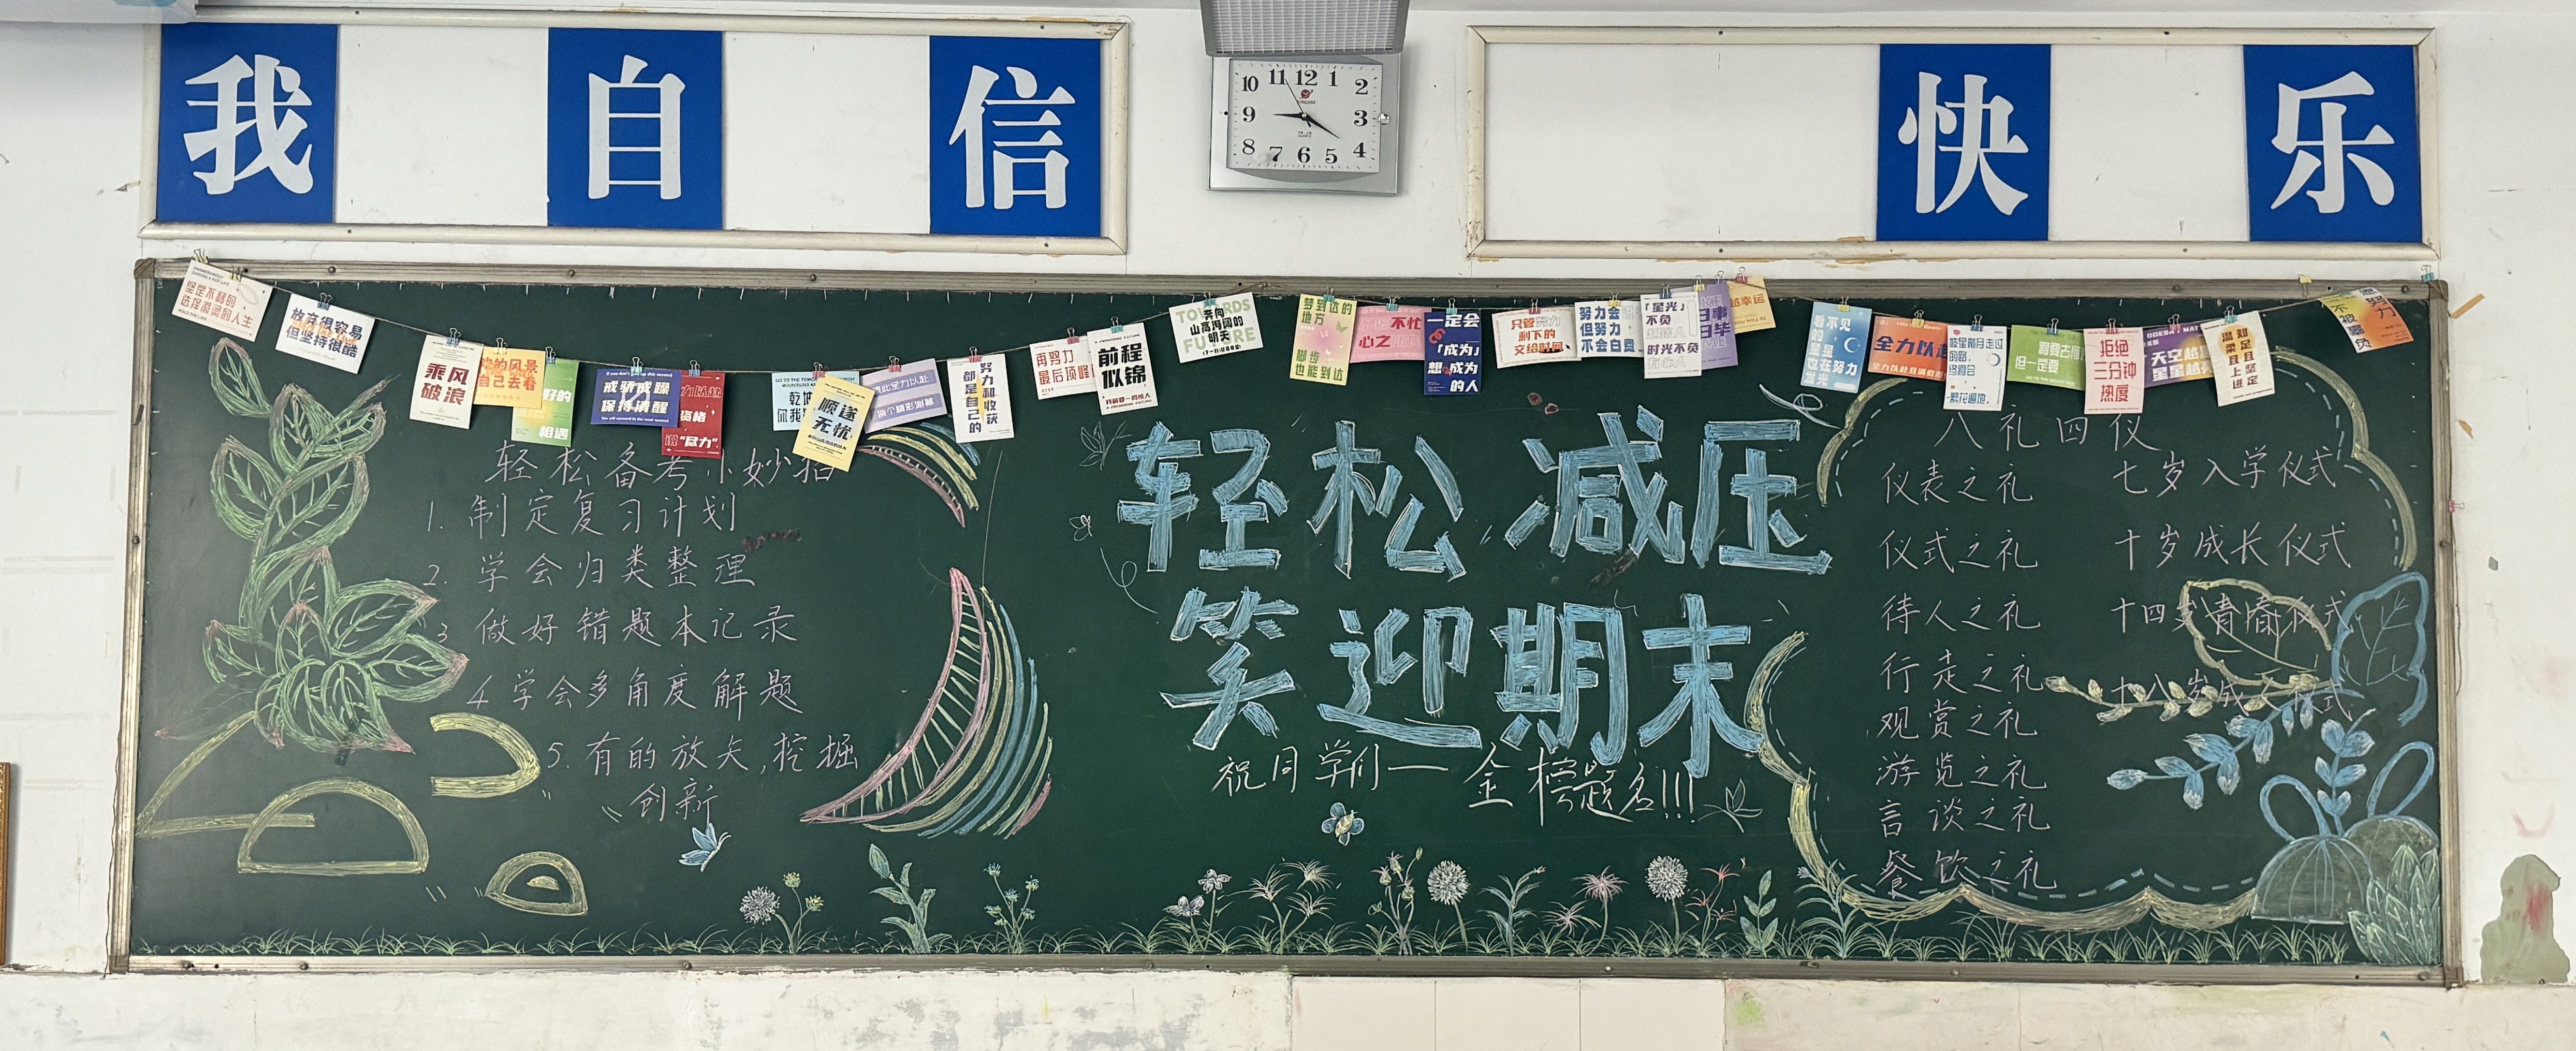 我 自 信
快 乐
10 11 12 1 2
9 3
8 7 6 5 4
坚定不移的
选择滚烫的人生
放弃很容易
但坚持很酷
乘风
破浪
的风景
自己去看
好的
相遇
戒骄戒躁
保持清醒
资格
说“尽力”
顺遂
无忧
努力和收获
都是自己的
再努力
最后顶峰
前程
似锦
TOWARDS
奔向
山高海阔的
明天
FUTURE
梦到达的
地方
脚步
也能到达
不忙
心之
一定会
「成为」
想成为
的人
只管努力
剩下的
交给时间
努力会
但努力
不会白费
「星光」
不负
时光不负
有心人
幸运
看不见
的
星星
也在努力
发光
全力以赴
终将会
繁花遍地
但一定要
拒绝
三分钟
热度
天空越
星星越
温柔且坚定
知足且上进
不被辜负
轻松备考小妙招
1. 制定复习计划
2. 学会归类整理
3 做好错题本记录
4 学会多角度解题
5. 有的放矢,挖掘
创新
轻松 减压
笑迎期末
祝同学们——金榜题名!!!
八礼四仪
仪表之礼
仪式之礼
待人之礼
行走之礼
观赏之礼
游览之礼
言谈之礼
餐饮之礼
七岁入学仪式
十岁成长仪式
十四岁青春仪式
十八岁成人仪式